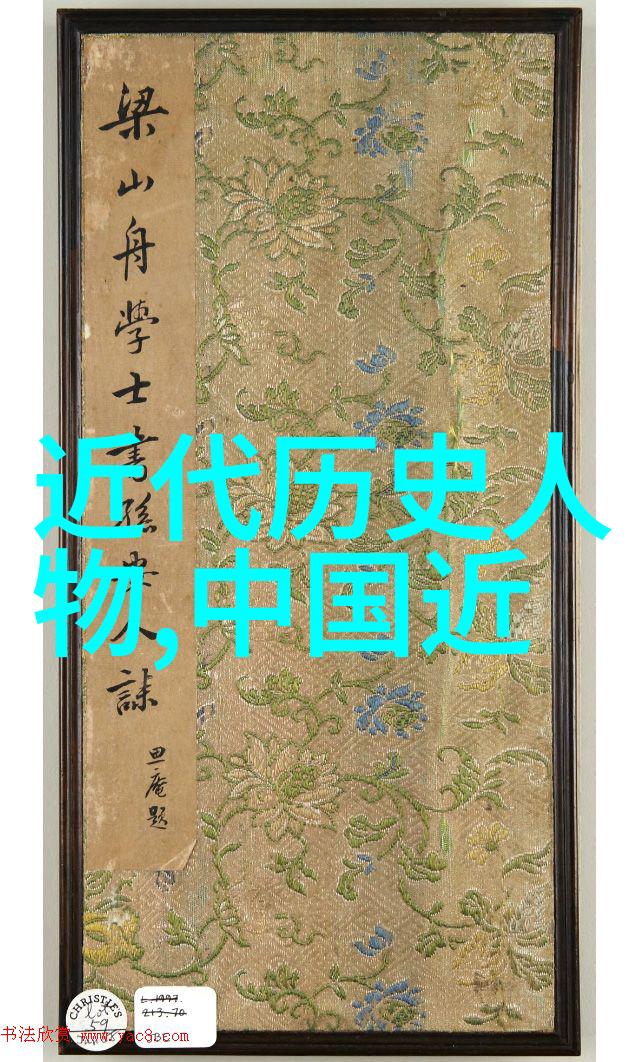 梁山舟學士書孫夫人誄
近代历史人
物,中国近
CHRISTIE'S
Lot
59
L.1997.
213.70
书法欣赏 www.yac8.com